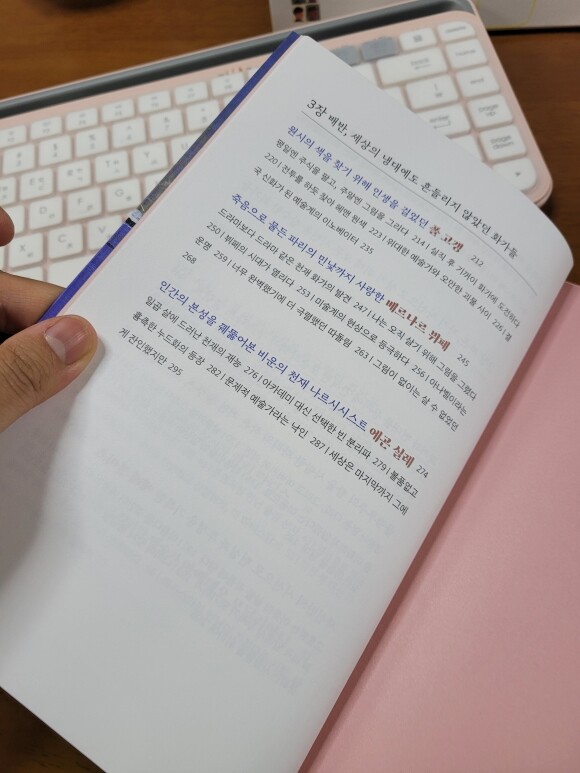 3장 배반, 세상의 냉대에도 흔들리지 않았던 화가들
원시의 색을 찾기 위해 인생을 걸었던 폴 고갱 212
평일엔 주식을 팔고, 주말엔 그림을 그리다 214 | 실직 후 기꺼이, 화가에 도전하다
220 | 전투를 하듯 찾아 헤맨 원색 223 | 위대한 예술가와 오만한 괴물 사이 226 | 결
국 신화가 된 예술계의 이노베이터 235
죽음으로 물든 파리의 민낯까지 사랑한 베르나르 뷔페 245
드라마보다 드라마 같은 천재 화가의 발견 247 | 나는 오직 살기 위해 그림을 그렸다
250 | 뷔페의 시대가 열리다 253 | 미술계의 현상으로 등극하다 256 | 아나벨이라는
운명 259 | 너무 완벽했기에 더 극렬했던 따돌림 263 | 그림이 없이는 살 수 없었던
268
인간의 본성을 꿰뚫어본 비운의 천재 나르시시스트 에곤 실레 274
일곱 살에 드러난 천재의 재능 276 | 아카데미 대신 선택한 빈 분리파 279 | 볼품없고
퀭측한 누드화의 등장 282 | 문제적 예술가라는 낙인 287 | 세상은 마지막까지 그에
게 잔인했지만 295